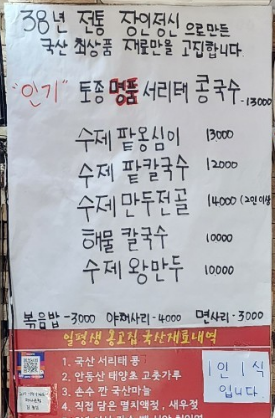 38년 전통 장인정신으로만든
국산 최상품 재료만을 고집합니다
"인기" 토종 명품 서리태 콩국수 -13000
수제 팥옹심이 13000
수제 팥칼국수 12000
수제 만두전골 14000 (2인이상)
해물 칼국수 10000
수제 왕만두 10000
볶음밥 -3000 야채사리 -4000 면사리 -3000
일평생 옹고집 국산재료내역
1. 국산 서리태 콩
2. 안동산 태양초 고춧가루
3. 손수 깐 국산마늘
4. 직접 담은 멸치액젓, 새우젓
1인 1식
입니다